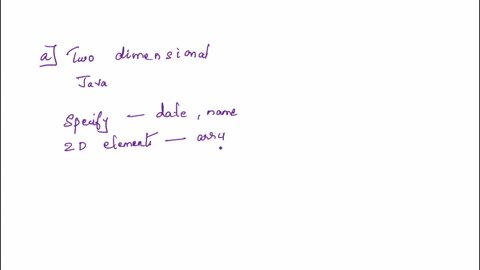 a] Two dimensional
Java
Specify — date, name
2D elements — arry